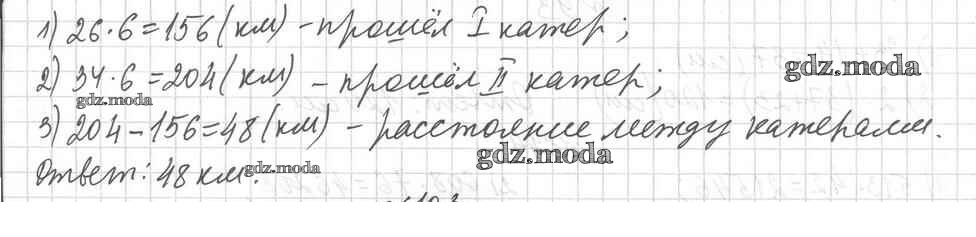 1) 26·6=156(км) – прошёл I катер;
2) 34·6=204(км) – прошёл II катер;
gdz.moda
gdz.moda
3) 204–156=48(км) – расстояние между катерами.
gdz.moda
Ответ: 48 км.
gdz.moda